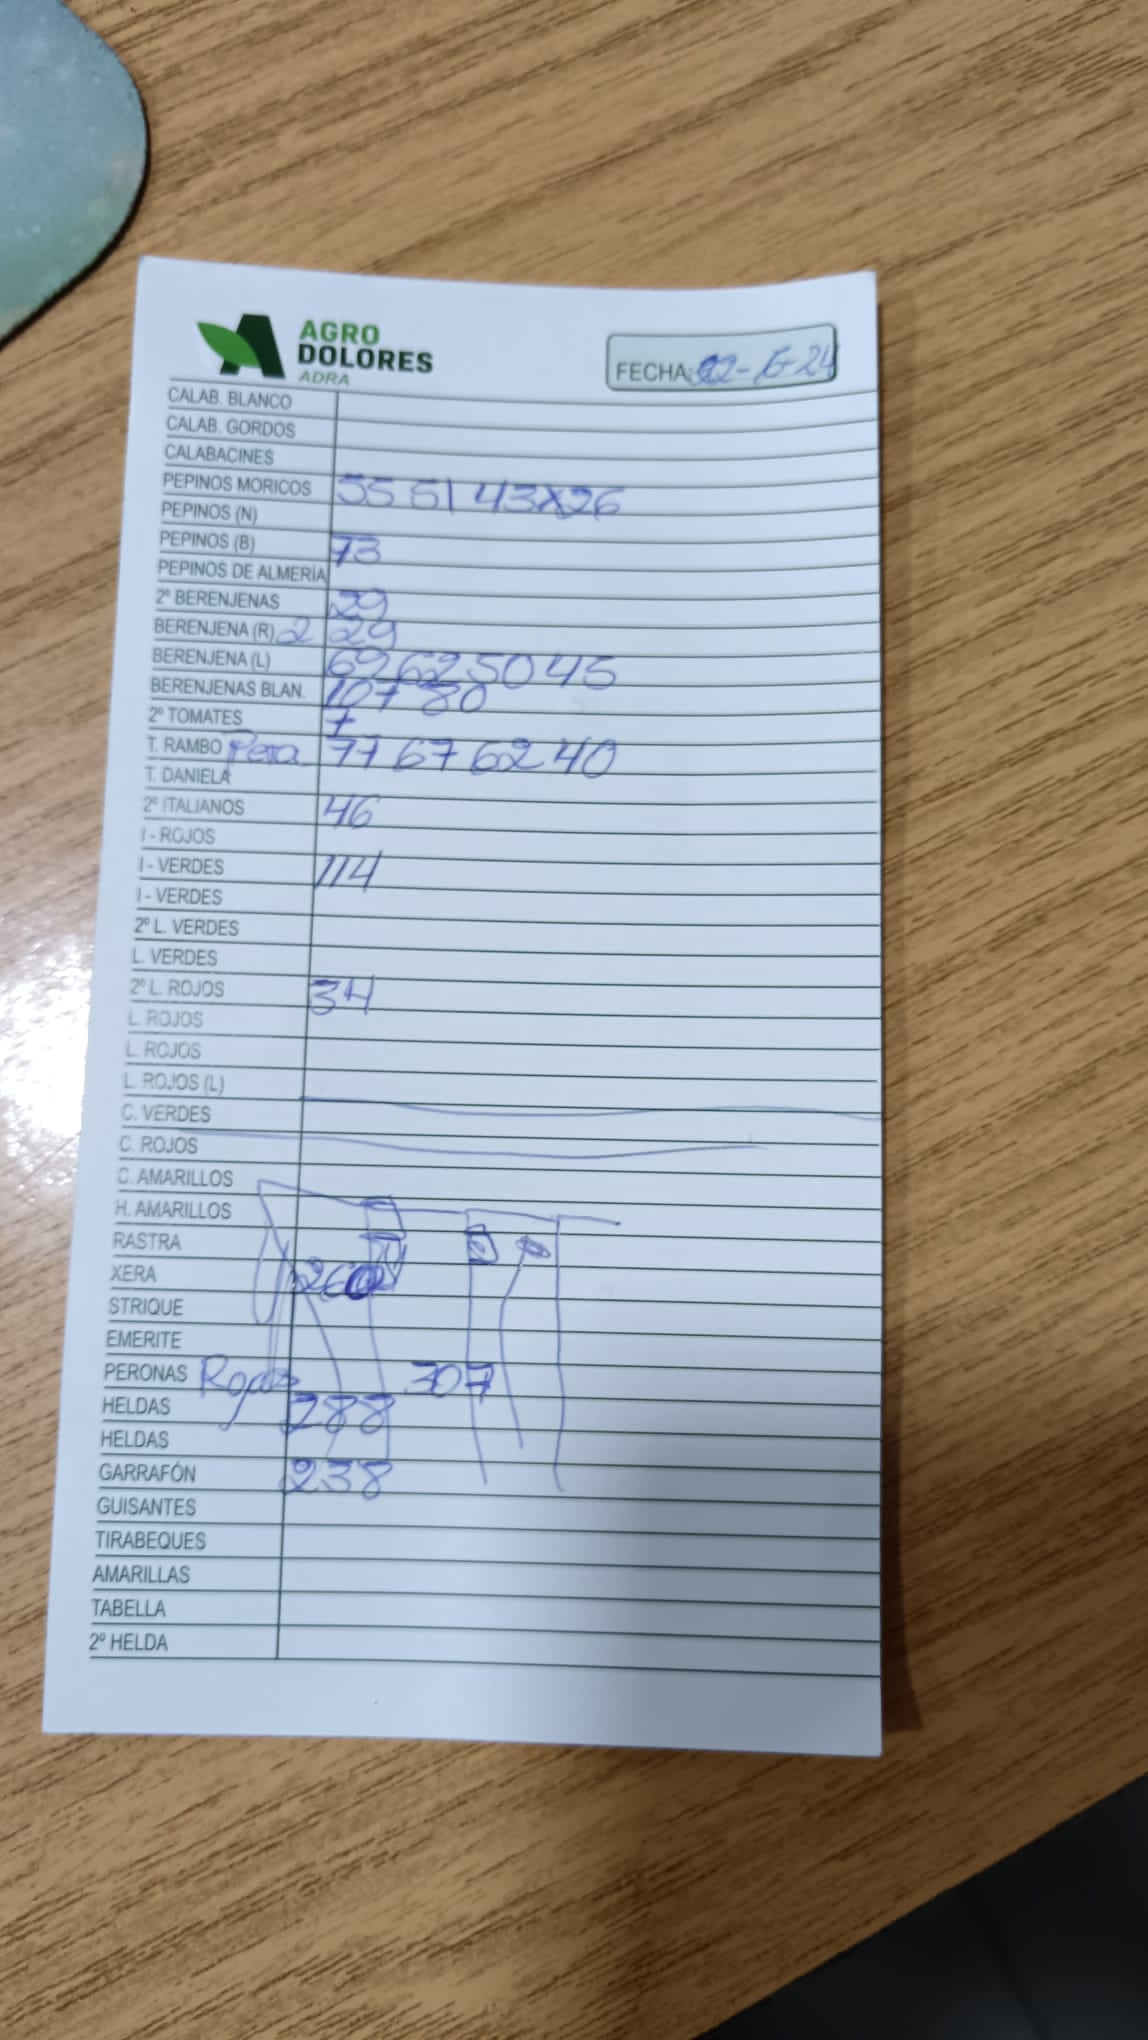 AGRO
DOLORES
ADRA
FECHA: 22-6-24
CALAB. BLANCO
CALAB. GORDOS
CALABACINES
PEPINOS MORICOS 55 51 43x26
PEPINOS (N)
PEPINOS (B) 73
PEPINOS DE ALMERÍA
2º BERENJENAS 29
BERENJENA (R) 2 29
BERENJENA (L) 69 62 50 45
BERENJENAS BLAN. 107 80
2º TOMATES 7
T. RAMBO Pera 77 67 62 40
T. DANIELA
2º ITALIANOS 46
I - ROJOS
I - VERDES 114
I - VERDES
2º L. VERDES
L. VERDES
2º L. ROJOS 34
L. ROJOS
L. ROJOS
L. ROJOS (L)
C. VERDES
C. ROJOS
C. AMARILLOS
H. AMARILLOS
RASTRA
XERA 260
STRIQUE
EMERITE
PERONAS Rojas 307
HELDAS 288
HELDAS
GARRAFÓN 238
GUISANTES
TIRABEQUES
AMARILLAS
TABELLA
2º HELDA